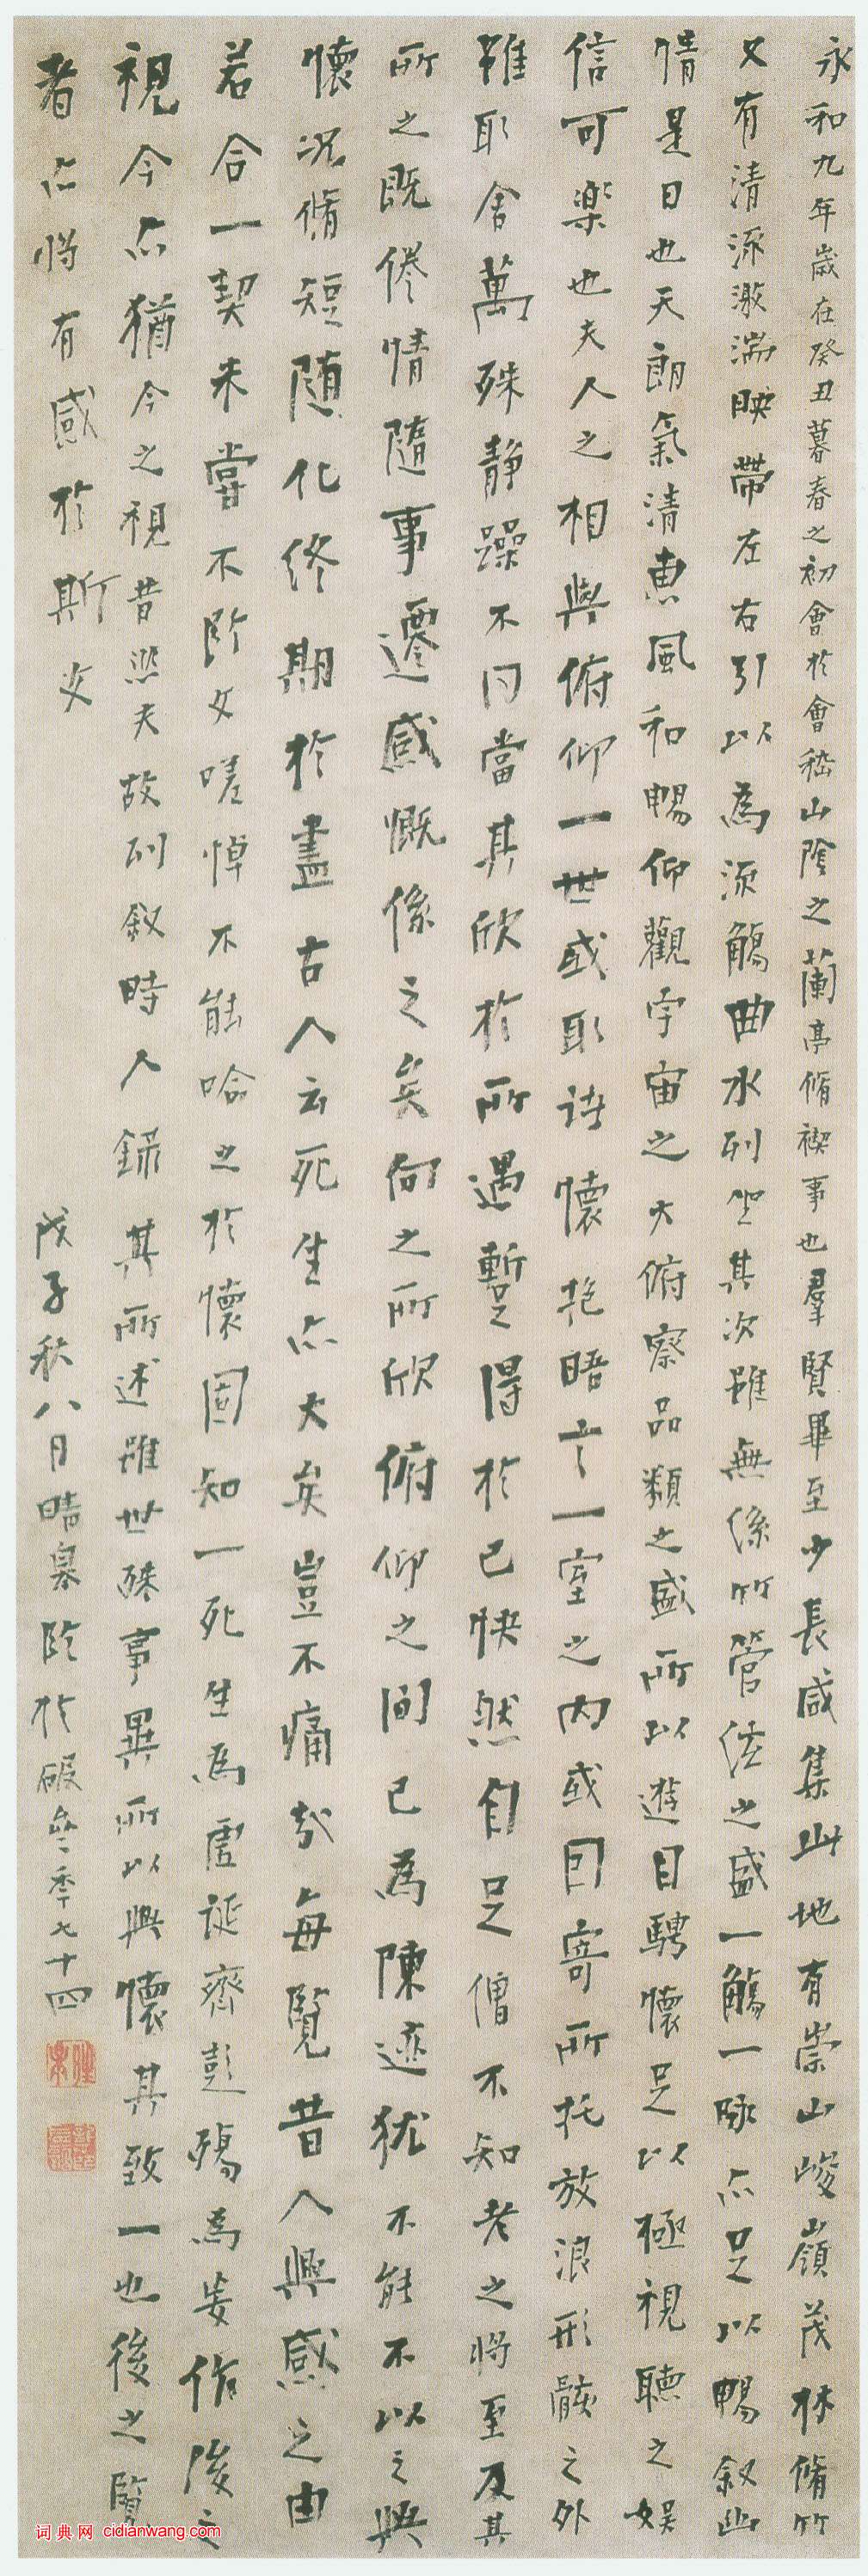 永和九年歲在癸丑暮春之初會於會嵇山陰之蘭亭脩禊事也羣賢畢至少長咸集此地有崇山峻嶺茂林脩竹
又有清流激湍映帶左右引以為流觴曲水列坐其次雖無絲竹管弦之盛一觴一詠亦足以暢敘幽
情是日也天朗氣清惠風和暢仰觀宇宙之大俯察品類之盛所以遊目騁懷足以極視聽之娛
信可樂也夫人之相與俯仰一世或取諸懷抱晤言一室之內或因寄所托放浪形骸之外
雖取舍萬殊靜躁不同當其欣於所遇暫得於己快然自足僧不知老之將至及其
所之既倦情隨事遷感慨係之矣向之所欣俯仰之間已為陳迹猶不能不以之興
懷況脩短隨化終期於盡古人云死生亦大矣豈不痛哉每覽昔人興感之由
若合一契未嘗不臨文嗟悼不能喻之於懷固知一死生為虛誕齊彭殤為妄作後之
視今亦猶今之視昔悲夫故列敘時人錄其所述雖世殊事異所以興懷其致一也後之覽
者亦將有感於斯文
戊子秋八月晴皋臨於硯年七十四
词典网 cidianwang.com